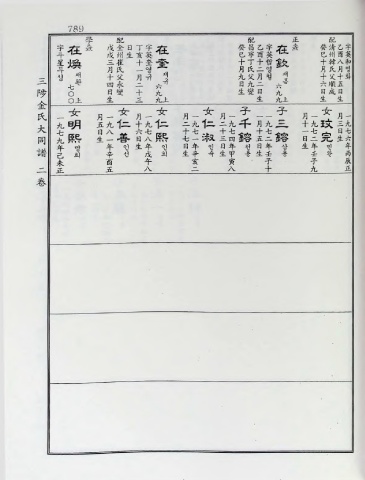 789
字英和영화
乙酉八月十五日生
配清州韓氏父順成
癸巳十月十六日生
正熹
在欽 재흠 六九九 上
字英哲영철
乙酉十二月二日生
配昌寧丁氏父九燮
癸巳十月九日生
在奎 재규 六九九 上
字英奎영규
丁亥十一月二十三
日生
配全州崔氏父永燮
戊戌三月十四日生
學熹
在煥 재환 七〇〇 上
一九七六年丙辰正
月三日生
女玟完 민완
一九七二年壬子九
月十一日生
子三鎔 삼용
一九七二年壬子十
月五日生
子千鎔 천용
一九七四年甲寅八
月二十三日生
女仁淑 인숙
一九七一年辛亥二
月二十七日生
女仁熙 인희
一九七八年戊午八
月十六日生
女仁善 인선
一九八一年辛酉五
月五日生
女明熙 명희
一九七九年己未正
三陟金氏大同譜 二卷